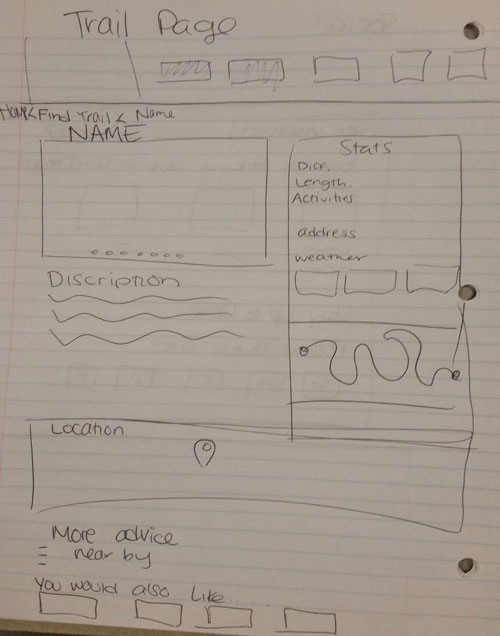 Trail Page
Home < Find Trail < Name
NAME
Stats
Diff.
Length.
Activities
address
weather
Discription
Location
More advice
near by
You would also like...